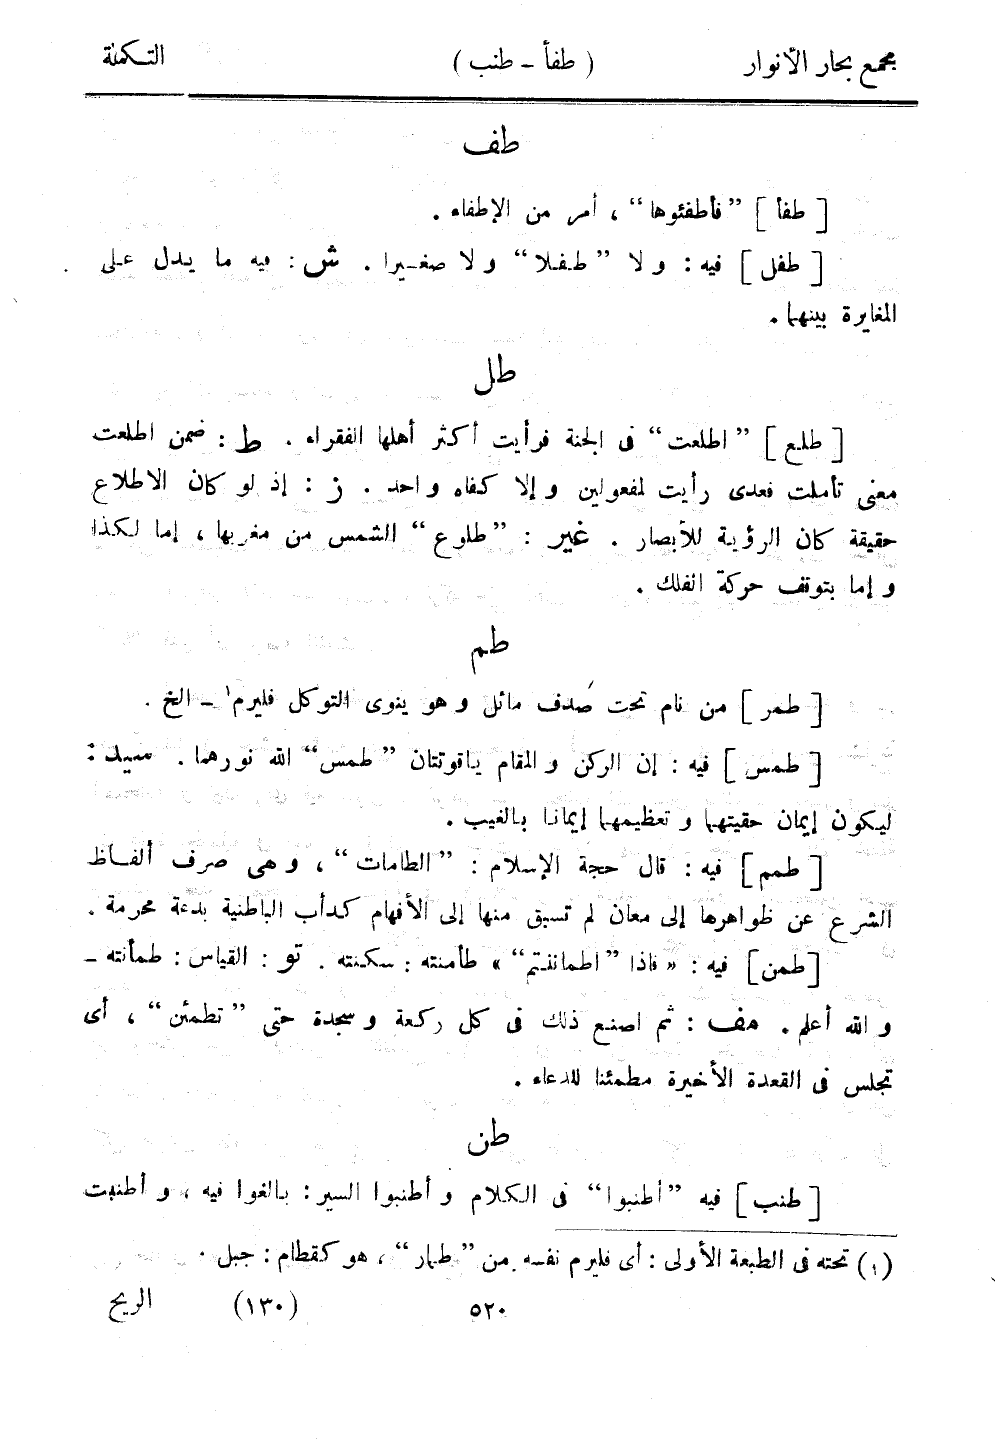 مجمع بحار الأنوار ( طفأ - طنب ) التكملة
طف
[ طفأ ] ”فأطفئوها“ ، أمر من الإطفاء .
[ طفل ] فيه : و لا ”طفلا“ و لا صغيرا . ش : فيه ما يدل على
المغايرة بينهما .
طل
[ طلع ] ”اطلعت“ فى الجنة فرأيت أكثر أهلها الفقراء . ط : ضمن اطلعت
معنى تأملت فعدى رأيت لمفعولين و إلا كفاه واحد . ز : إذ لو كان الاطلاع
حقيقة كان الرؤية للأبصار . غير : ”طلوع“ الشمس من مغربها ، إما لكذا
و إما بتوقف حركة الفلك .
طم
[ طمر ] من نام تحت صَدف مائل و هو ينوى التوكل فليرم١ - الخ .
[ طمس ] فيه : إن الركن و المقام ياقوتتان ”طمس“ الله نورهما . سيد :
ليكون إيمان حقيتهما و تعظيمهما إيمانا بالغيب .
[ طمم ] فيه : قال حجة الإسلام : ”الطامات“ ، و هى صرف ألفاظ
الشرع عن ظواهرها إلى معان لم تسبق منها إلى الأفهام كدأب الباطنية بدعة محرمة .
[ طمن ] فيه : « فاذا ”اطماننتم“ » طأمنته : سكنته . تو : القياس : طمأنته -
و الله أعلم . مف : ثم اصنع ذلك فى كل ركعة و سجدة حتى ”تطمئن“ ، أى
تجلس فى القعدة الأخيرة مطمئنا للدعاء .
طن
[ طنب ] فيه ”أطنبوا“ فى الكلام و أطنبوا السير : بالغوا فيه ، و أطنبت
(١) تحته فى الطبعة الأولى : أى فليرم نفسه من ”طمار“ ، هو كقطام : جبل .
٥٢٠ (١٣٠) الريح